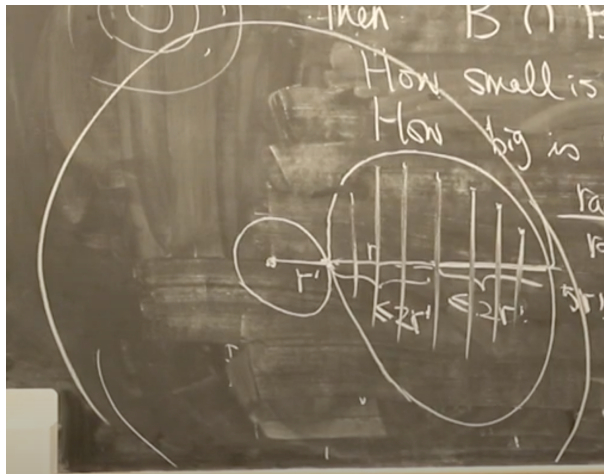 Then B ∩ B
How small is
How big is
ra
r
r' r
≤2r' ≤2r' 5r'